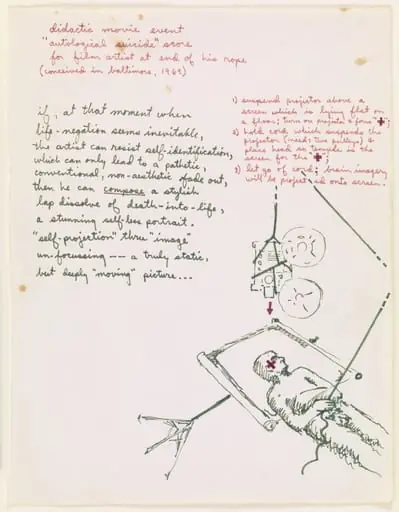 didactic movie event
"autological suicide" score
for film artist at end of his rope
(conceived in baltimore,
if, at that moment when
life-negation seems inevitable,
the artist can resist self-identification,
which can only lead to a pathetic
conventional, non-aesthetic fade out,
then he can compose a stylish
lap dissolve of death-into-life,
a stunning self-less portrait.
"self-projection" thru "image"
un-focussing -- a truly static,
but deeply "moving" picture...
1) suspend projector above a
screen which is lying flat on
a floor; turn on projector & focus "✚";
2) hold cord which suspends the
projector (needs two pulleys) &
place head so temple is the
screen for the "✚";
3) let go of cord; brain imagery
will be projected onto screen.